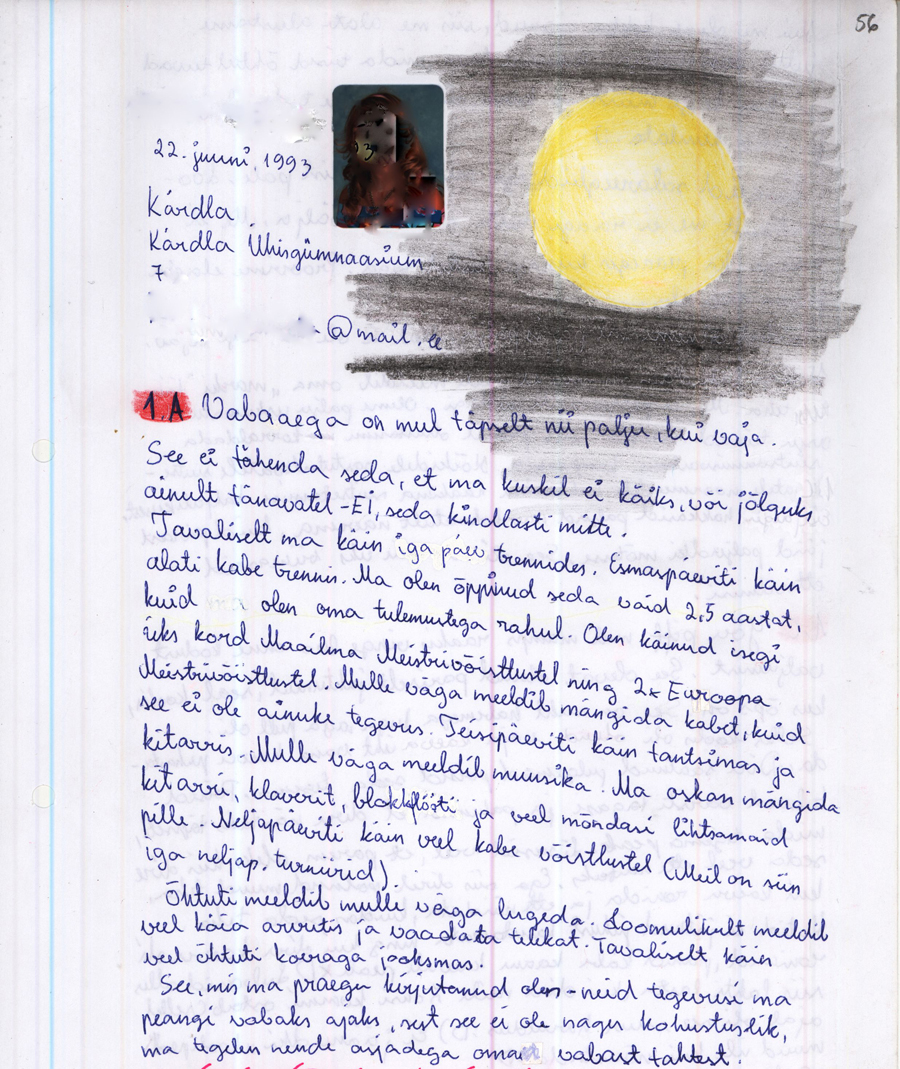 56
22. juuni, 1993
Kärdla
Kärdla Ühisgümnaasium
7
@mail.ee
1.A Vabaaega on mul täpselt nii palju, kui vaja.
See ei tähenda seda, et ma kuskil ei käiks, või jõlguks
ainult tänavatel - Ei, seda kindlasti mitte.
Tavaliselt ma käin iga päev trennides. Esmaspäeviti käin
alati kabe trennis. Ma olen õppinud seda vaid 2,5 aastat,
kuid olen oma tulemustega rahul. Olen käinud isegi
üks kord Maailma Meistrivõistlustel ning 2x Euroopa
Meistrivõistlustel. Mulle väga meeldib mängida kabet, kuid
see ei ole ainuke tegevus. Teisipäeviti käin tantsimas ja
kitarris. Mulle väga meeldib muusika. Ma oskan mängida
kitarri, klaverit, blokkflööti ja veel mõndasi lihtsamaid
pille. Neljapäeviti käin veel kabe võistlustel (Meil on siin
iga neljap. turniirid).
Õhtuti meeldib mulli väga lugeda. Loomulikult meeldib
veel käia arvutis ja vaadata telikat. Tavaliselt käin
veel õhtuti koeraga jooksmas.
See, mis ma praegu kirjutanud olen - neid tegevusi ma
peangi vabaks ajaks, sest see ei ole nagu kohustuslik,
ma tegelen nende asjadega omast vabast tahtest.